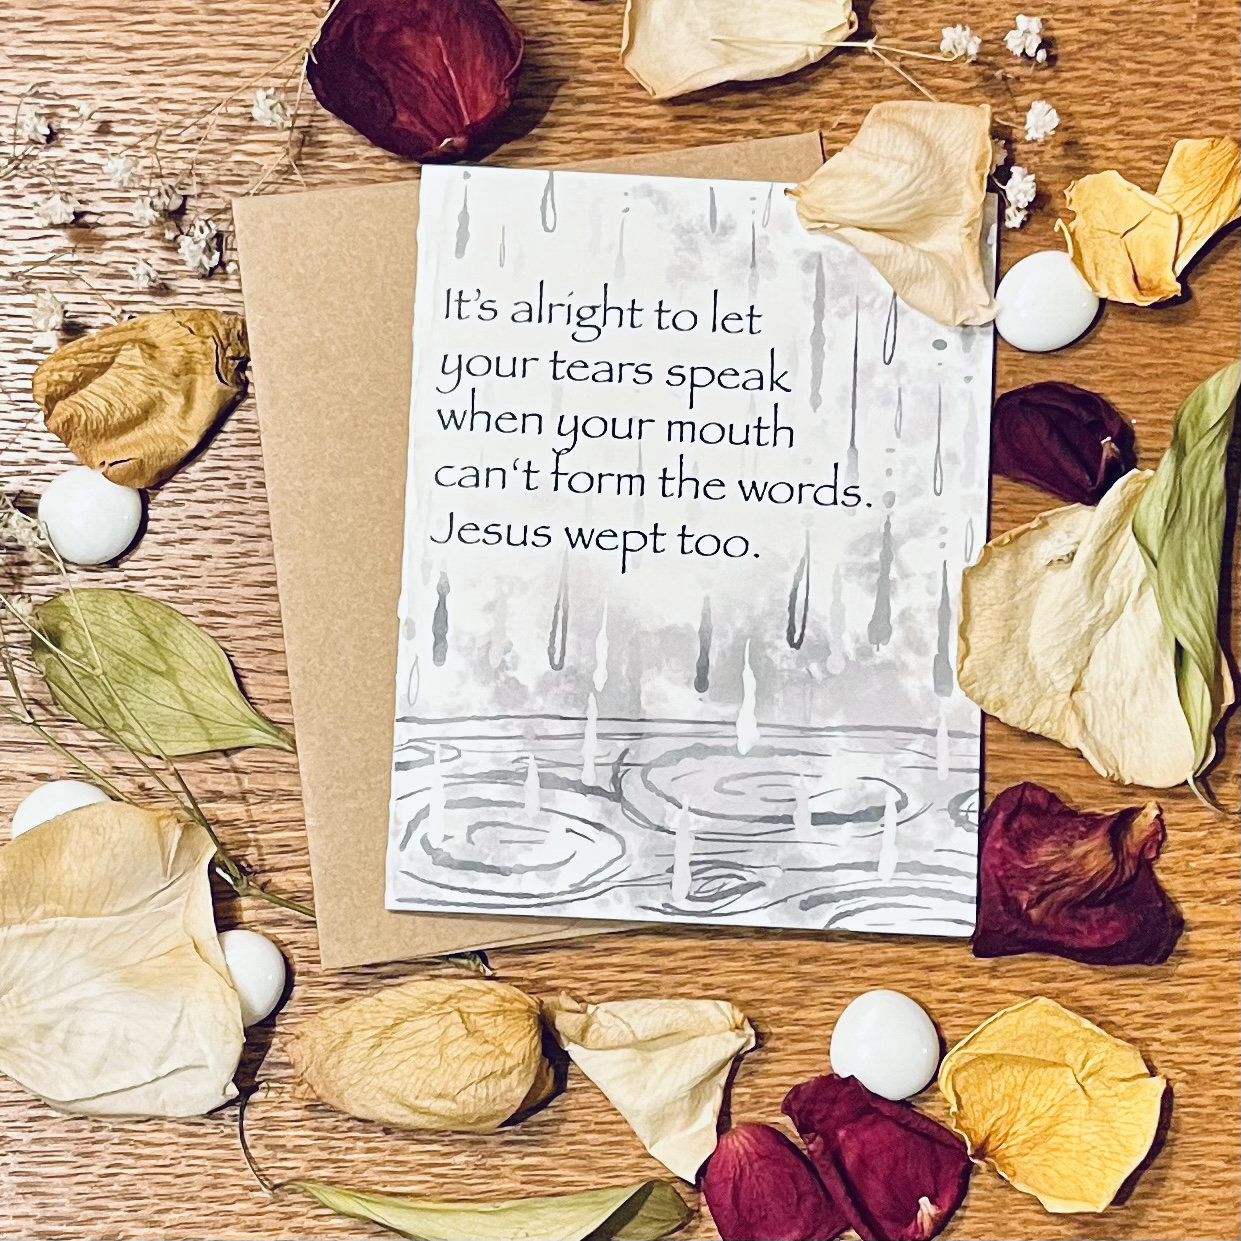 It's alright to let
your tears speak
when your mouth
can‘t form the words.
Jesus wept too.